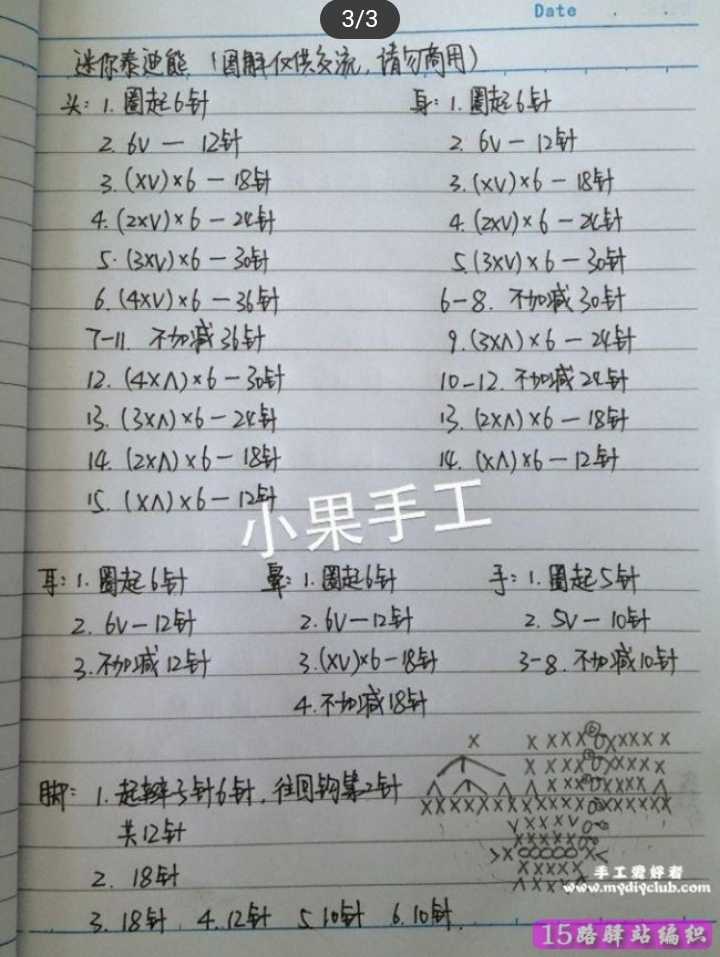 3/3
Date
迷你泰迪熊（图解仅供交流，请勿商用）
头：1. 圈起6针
2. 6V — 12针
3. (XV)×6 — 18针
4. (2XV)×6 — 24针
5. (3XV)×6 — 30针
6. (4XV)×6 — 36针
7-11. 不加减36针
12. (4XΛ)×6 — 30针
13. (3XΛ)×6 — 24针
14. (2XΛ)×6 — 18针
15. (XΛ)×6 — 12针
身：1. 圈起6针
2. 6V — 12针
3. (XV)×6 — 18针
4. (2XV)×6 — 24针
5. (3XV)×6 — 30针
6-8. 不加减30针
9. (3XΛ)×6 — 24针
10-12. 不加减24针
13. (2XΛ)×6 — 18针
14. (XΛ)×6 — 12针
小果手工
耳：1. 圈起6针
2. 6V — 12针
3. 不加减12针
鼻：1. 圈起6针
2. 6V — 12针
3. (XV)×6 — 18针
4. 不加减18针
手：1. 圈起5针
2. 5V — 10针
3-8. 不加减10针
脚：1. 起辫子针6针，往回钩第2针
共12针
2. 18针
3. 18针 4. 12针 5. 10针 6. 10针.
手工爱好者
www.mydiyclub.com
15路驿站编织